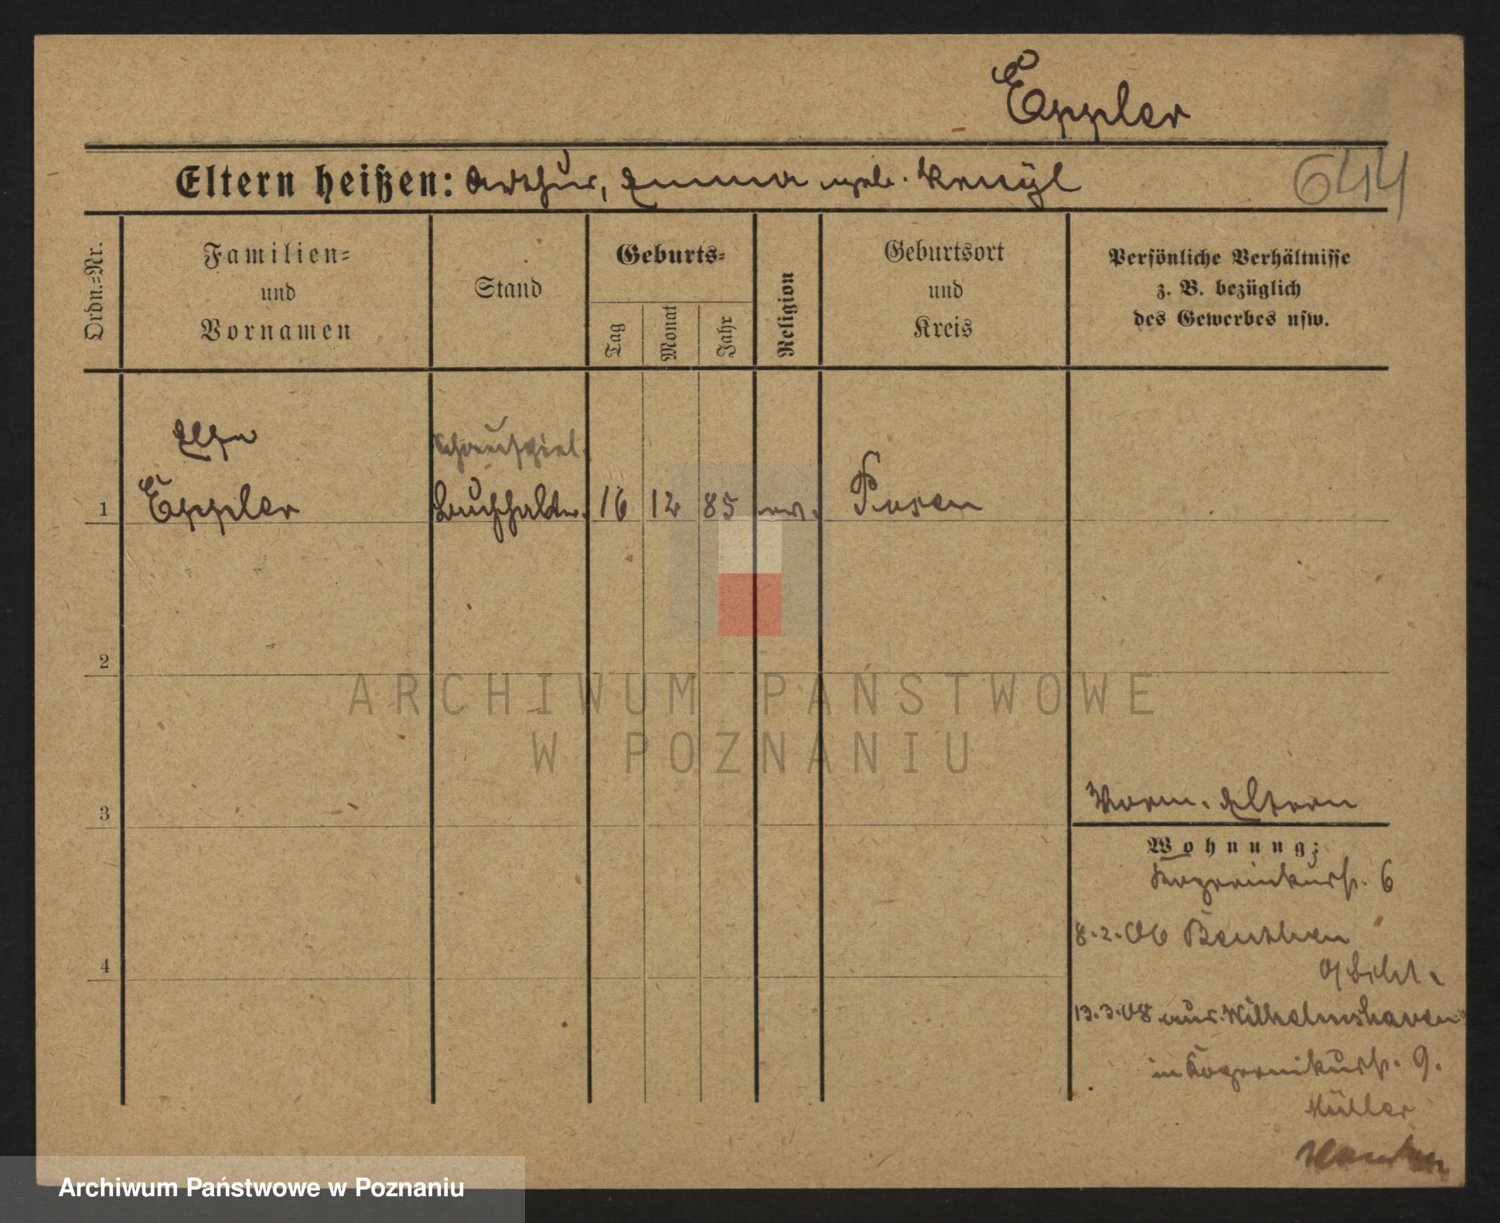 Eppler
Eltern heißen: Arthur, Emma geb.
644
Ordn.=Nr.
Familien=
und
Vornamen
Stand
Geburts=
Tag
Monat
Jahr
Religion
Geburtsort
und
Kreis
Persönliche Verhältnisse
z. B. bezüglich
des Gewerbes usw.
Else
Schauspiel.
1 Eppler Buchhaltr. 16 12 85 ev. Posen
2
ARCHIWUM PAŃSTWOWE
W POZNANIU
3
Vorm. Eltern
Wohnung:
Kopernikusstr. 6
8.2.06 Beuthen
4
13.3.08 aus Wilhelmshaven
in Kopernikusstr. 9.
Müller
Archiwum Państwowe w Poznaniu